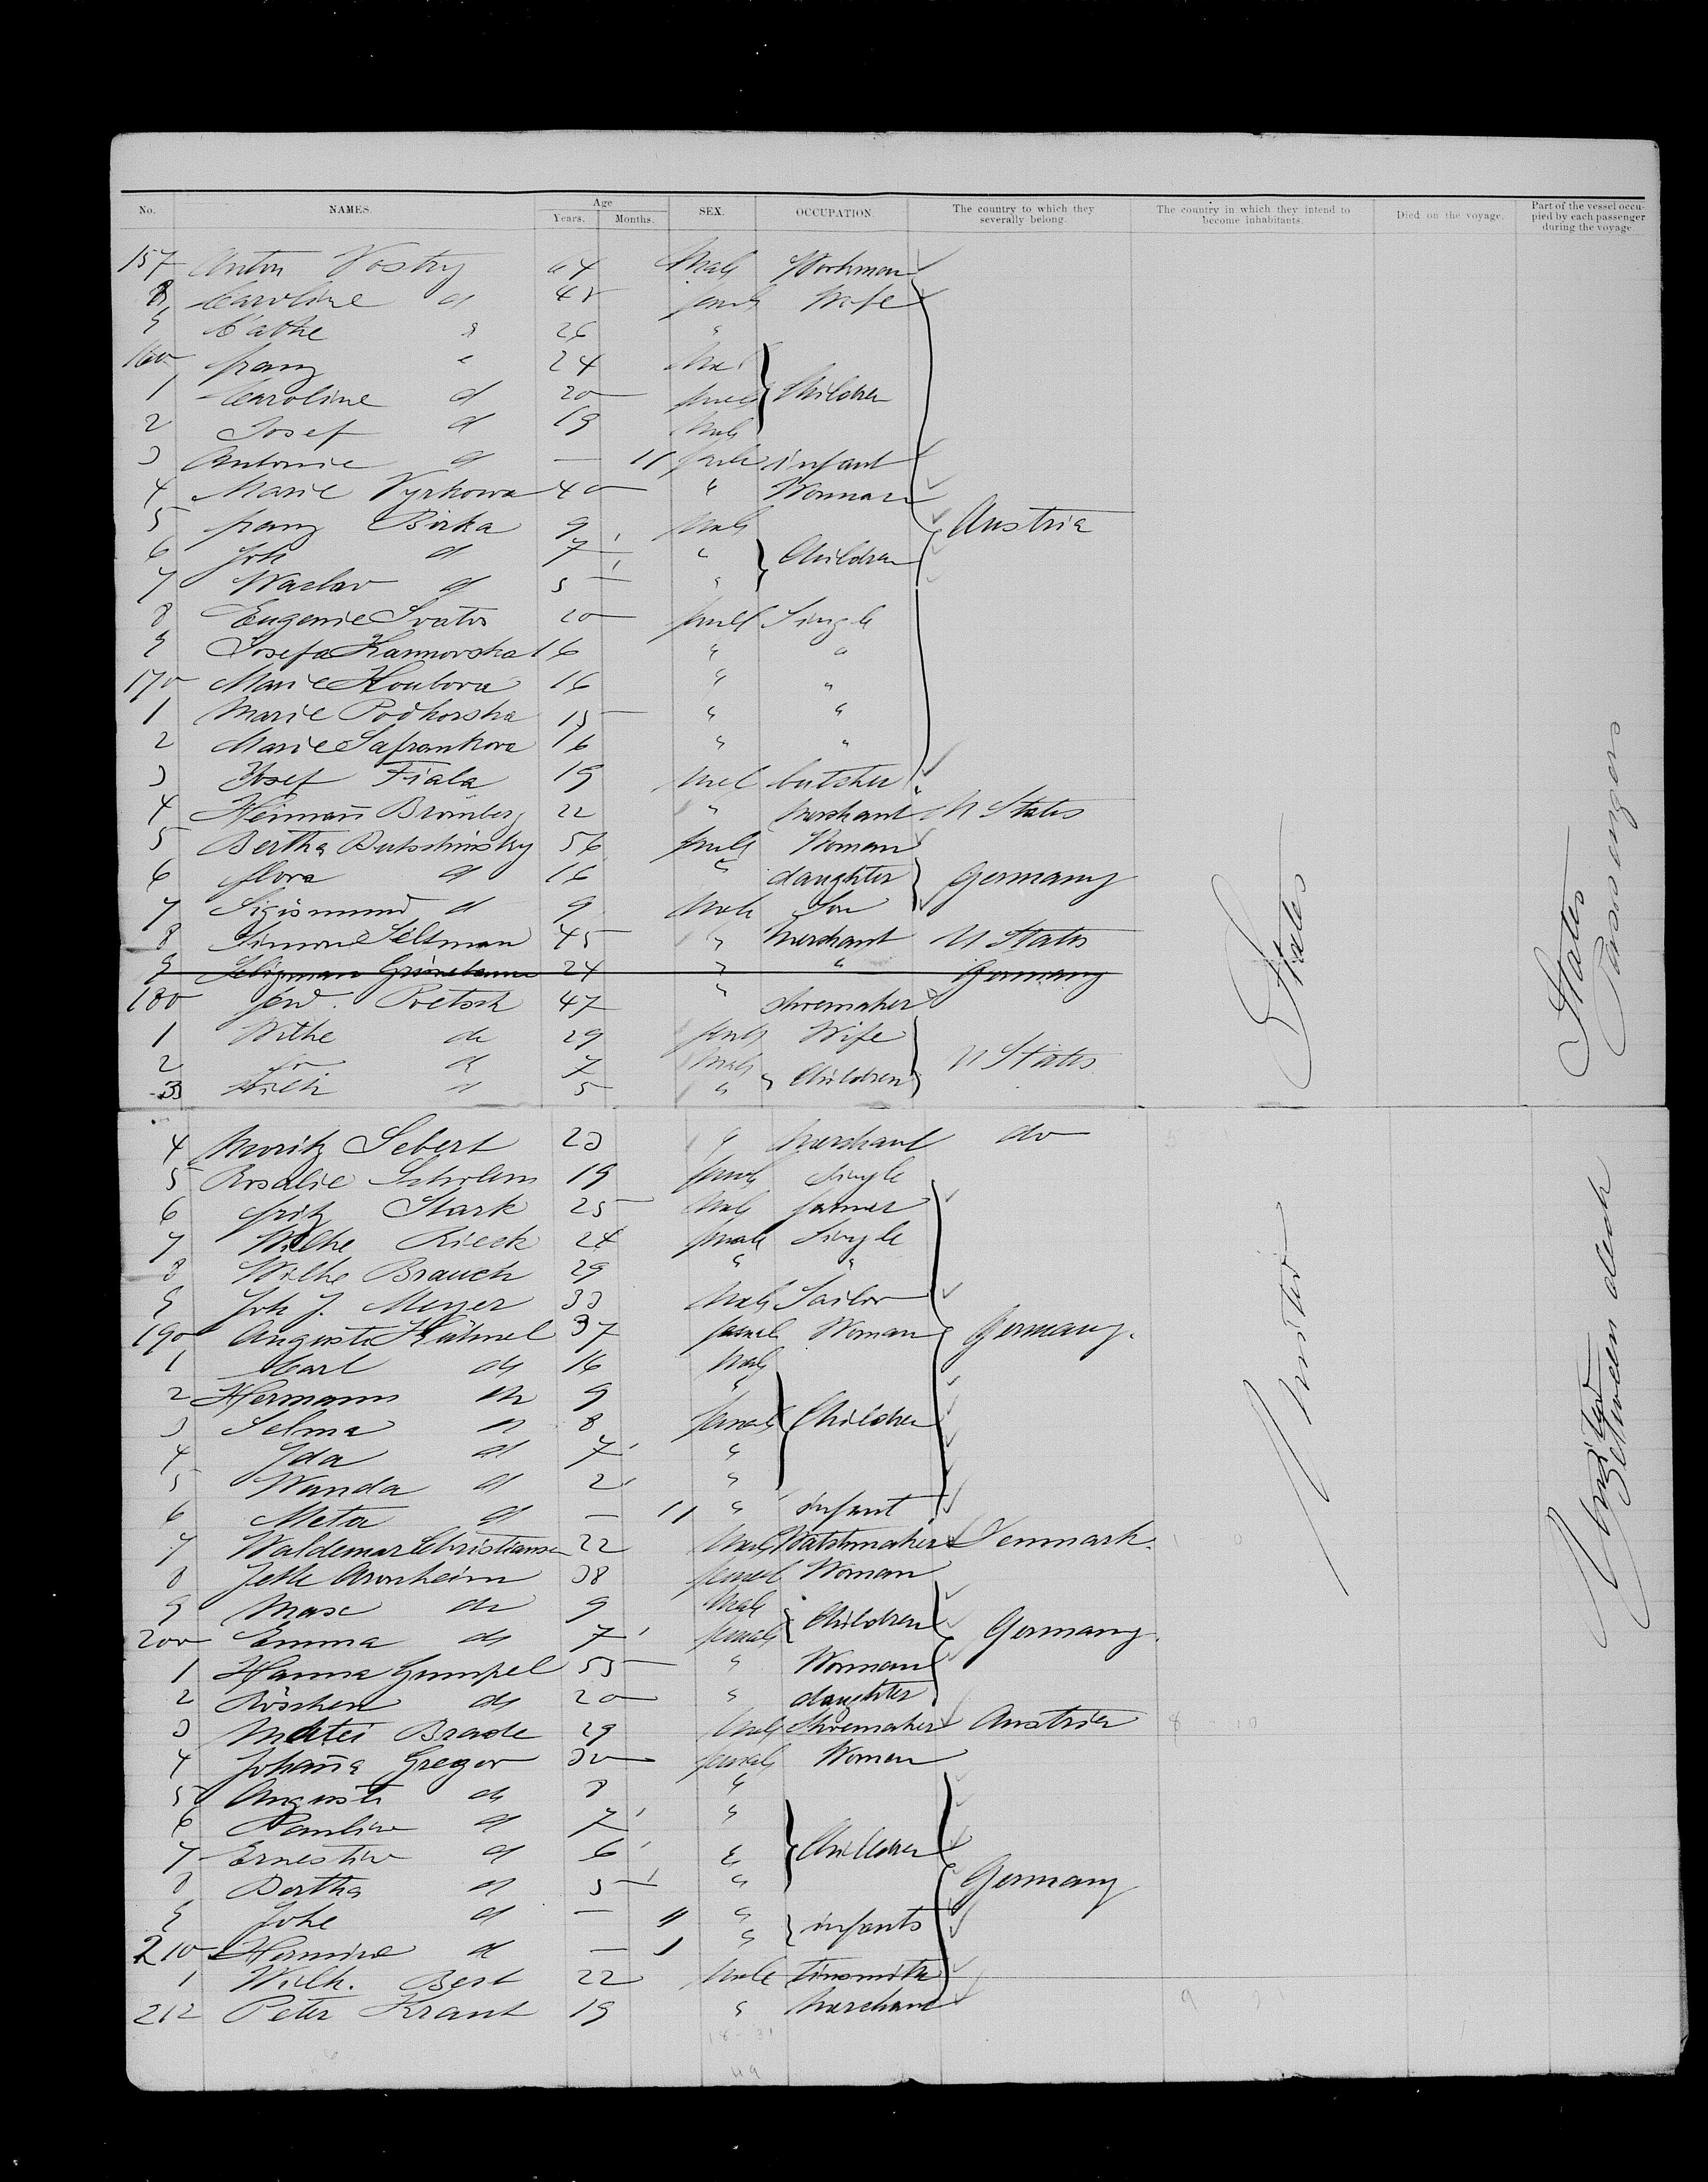 No. NAMES. Age Years. Months. SEX. OCCUPATION. The country to which they severally belong. The country in which they intend to become inhabitants. Died on the voyage. Part of the vessel occupied by each passenger during the voyage
157 Anton Vostry 44 Male Workman
8 Caroline d 45 female Wife
9 Cathe " 26 "
160 franz " 24 Male
1 Caroline d 20 female Children
2 Josef d 19 Male
3 Antonie d — 11 female infant
4 Marie Vyrkowa 40 " Woman
5 franz Birka 9 Male Austria
6 Joh d 7 " Children
7 Wazlav d 5 "
8 Eugenie Svatos 20 female Single
9 Josefa Kannovska 16 " "
170 Marie Houbova 16 " "
1 Marie Podhorska 15 " "
2 Marie Safrankova 16 " "
3 Josef Fiala 19 Male butcher
4 Heimañ Bromberg 22 " Merchant U States
5 Bertha Butschinsky 56 female Woman
6 flora d 16 " daughter Germany
7 Sigismund d 9 Male Son
8 Simon Seltman 45 " Merchant U States
9 Seligman Grünebaum 24 " " Germany
180 ferd. Poetsch 47 " Shoemaker
1 Wilhe do 29 female Wife
2 d 7 Male U States
3 d 5 " Children
4 Moritz Sebert 23 " Merchant do
5 Rosalie Scholem 19 female Single
6 fritz Stark 25 Male farmer
7 Wilhe Rieck 24 female Single
8 Wilhe Brauch 29 " "
9 Joh J. Meyer 33 Male Sailor
190 Auguste Kühnel 37 female Woman Germany.
1 Carl do 16 Male
2 Hermann do 9 "
3 Selma d 8 female Children
4 Ida d 7 "
5 Wanda d 2 "
6 Meta d — 11 " infant
7 Waldemar Christiansen 22 Male Watchmaker Denmark.
8 Jette Aronheim 38 female Woman
9 Max do 9 Male Children
200 Emma do 7 female Germany.
1 Hanna Gumpel 55 " Woman
2 Röschen do 20 " daughter
3 Matei Brade 29 Male Shoemaker Austria
4 Johaña Gregor 30 female Woman
5 Auguste do 8 "
6 Pauline d 7 "
7 Ernestine d 6 " Children
8 Bertha d 5 " Germany
9 Johe d — 11 "
210 Hermine d — 1 " infants
1 Wilh. Best 22 Male tinsmith
212 Peter Krant 19 " Merchant
18-31
49
United States
United States
Between deck Passengers